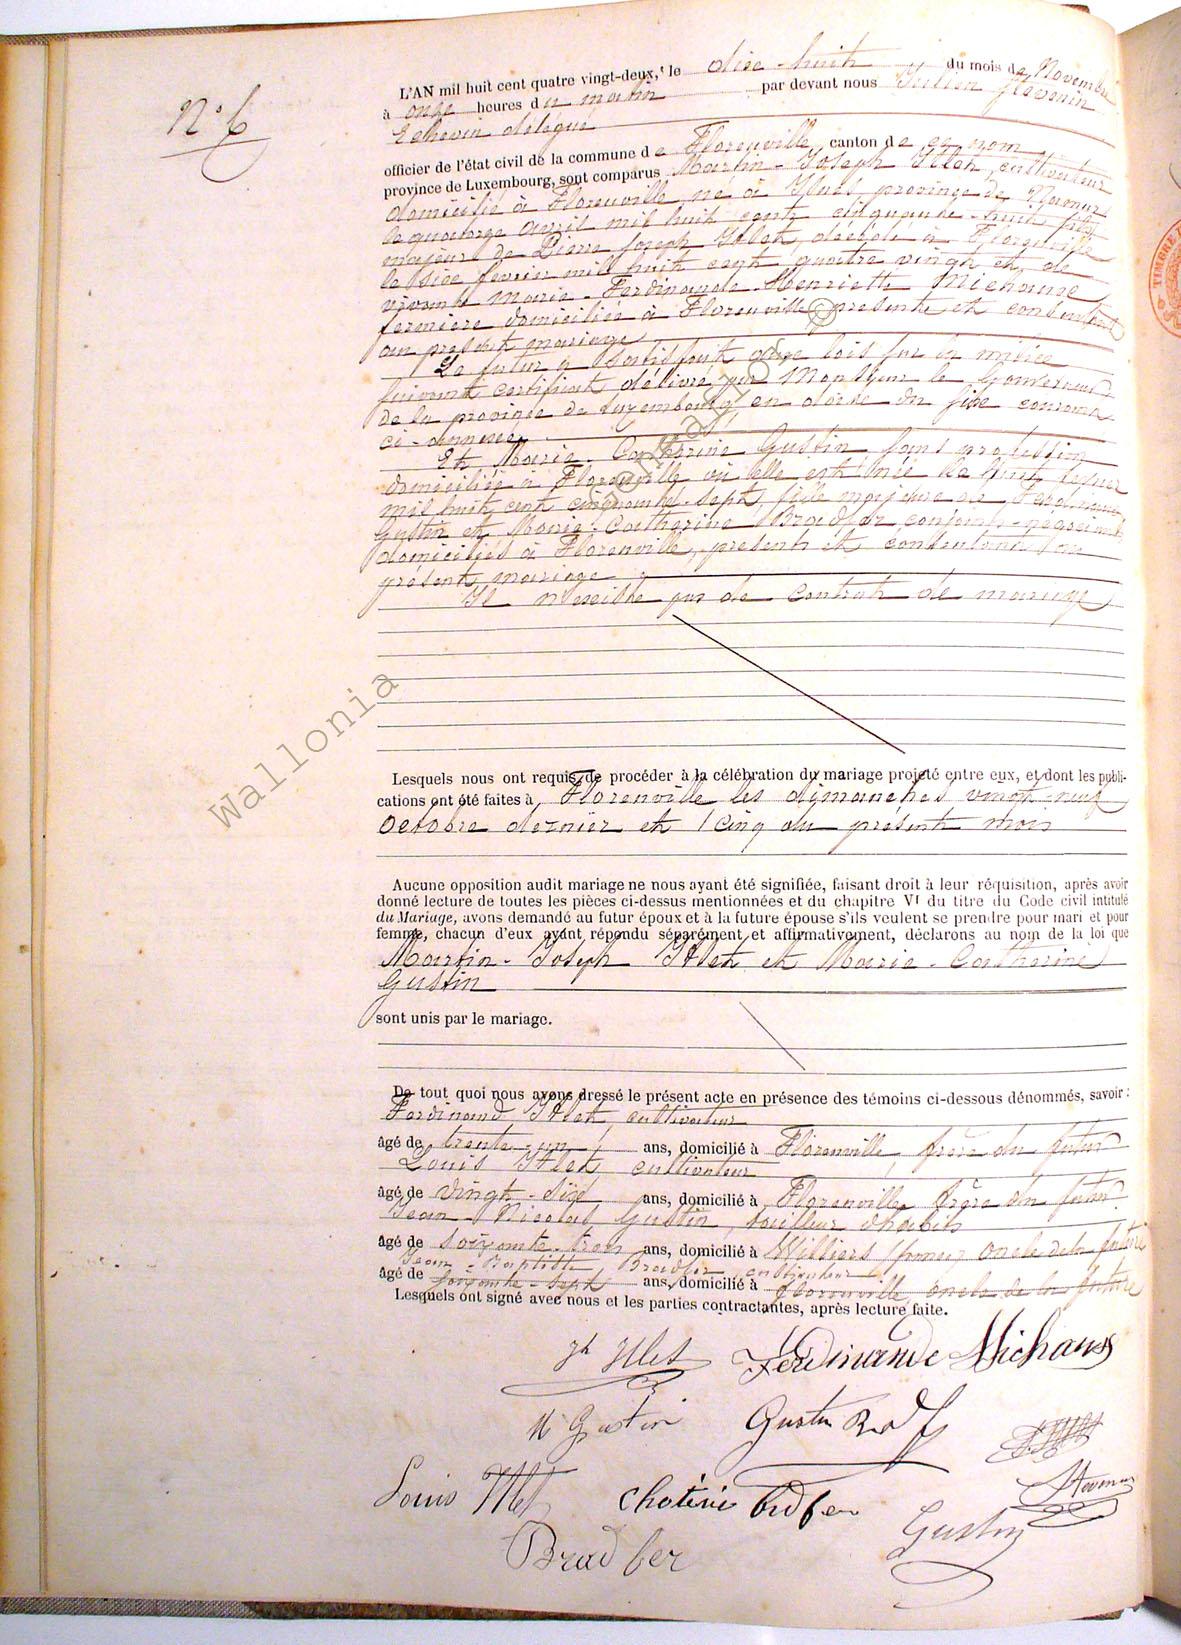 N° 6
L'AN mil huit cent quatre vingt-deux, le dixe-huit du mois de Novembre
à onze heures du matin par devant nous Julien
Echevin délégué
officier de l'état civil de la commune de Florenville, canton de ce nom
province de Luxembourg, sont comparus Martin-Joseph Itlet, cultivateur
domicilié à Florenville né à province de Namur
le quatorze avril mil huit cent cinquante-huit fils
majeur de Pierre Joseph Itlet, décédé à Florenville
le sixe février mill huit cent quatre vingt et de
vivante Marie-Ferdinande-Henriette Michaux
fermière domiciliée à Florenville présente et consentant
au présent mariage
Le futur a satisfait aux lois sur la milice
suivant certificat délivré par Monsieur le Gouverneur
de la province de Luxembourg en date du sixe courant
ci-annexé
Et Marie-Catherine Gustin sans profession
domiciliée à Florenville où elle est née le
mil huit cent cinquante-sept, fille majeure de Ferdinand
Gustin et Marie-Catherine Bradfer conjoints négociants
domiciliés à Florenville, présents et consentant au
présent mariage
Il n'existe pas de contrat de mariage
Lesquels nous ont requis de procéder à la célébration du mariage projeté entre eux, et dont les publi-
cations ont été faites à Florenville les dimanches vingt-neuf
octobre dernier et cinq du présent mois
Aucune opposition audit mariage ne nous ayant été signifiée, faisant droit à leur réquisition, après avoir
donné lecture de toutes les pièces ci-dessus mentionnées et du chapitre VI du titre du Code civil intitulé
du Mariage, avons demandé au futur époux et à la future épouse s'ils veulent se prendre pour mari et pour
femme, chacun d'eux ayant répondu séparément et affirmativement, déclarons au nom de la loi que
Martin-Joseph Itlet et Marie-Catherine
Gustin
sont unis par le mariage.
De tout quoi nous avons dressé le présent acte en présence des témoins ci-dessous dénommés, savoir :
Ferdinand Itlet, cultivateur
âgé de trente-un ans, domicilié à Florenville, frère du futur
Louis Itlet cultivateur
âgé de vingt-sixe ans, domicilié à Florenville frère du futur
Jean-Nicolas Gustin, tailleur d'habits
âgé de soixante-trois ans, domicilié à Williers (france) oncle de la future
Jean-Baptiste Bradfer cultivateur
âgé de soixante-sept ans, domicilié à Florenville, oncle de la future
Lesquels ont signé avec nous et les parties contractantes, après lecture faite.
Jh Itlet Ferdinande Michaux
M Gustin Gustin
Louis Itlet Gustin
Bradfer
wallonia
©